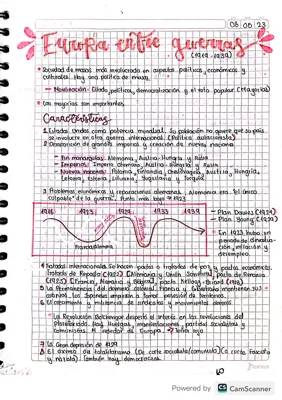 08 08 23
Europa entre guerras
(1919-1939)
• Sociedad de masas más involucrada en aspectos políticos, económicos y
culturales. Hay una política de masas.
- Nominación: Clases políticas, democratización y el voto popular (Mayorías)
• Las mayorías son importantes.
Características
1. Estados Unidos como potencia mundial. Su población no quiere que su país
se involucre en otra guerra internacional. (Política aislacionista)
2. Desaparición de grandes imperios y creación de nuevas naciones
- Fin monarquías: Alemania, Austro-Hungría y Rusia
- Imperios: Imperio Otomano, Austro-Hungría y Rusia
- Nuevas naciones: Polonia, Finlandia, Checoslovaquia, Austria, Hungría,
Letonia, Estonia, Lituania, Yugoslavia y Turquía
3. Problemas económicos y reparaciones alemanas. Alemania era "El único
culpable" de la guerra. Punto más bajo: 1923
1918 1923 1929 1933 1939
- Plan Dawes (1924)
- Plan Young (1929)
- En 1923 hubo un
periodo de
inflación y
desempleo
4. Tratados internacionales. Se hacen pactos o tratados de paz y pactos económicos.
Tratado de Rapallo (1922) (Alemania y Unión Soviética) Pacto de Locarno
(1925) (Francia, Alemania y Bélgica), Pacto Kellogg-Briand (1928)
5. Permanencia del dominio colonial. Francia y Gran Bretaña mantienen sus
colonias, los japoneses empiezan a tener posesión de territorios
6. El crecimiento y militancia de sindicatos y movimientos obreros
- La Revolución Bolchevique despertó el interés en las revoluciones del
proletariado. Hay huelgas, manifestaciones, partidos socialistas y
comunistas.
7. La Gran depresión de 1929
8. El ascenso de totalitarismo (De corte socialista/comunista) (De corte Fascista
y nazista). También hay democracias.
Powered by CS CamScanner